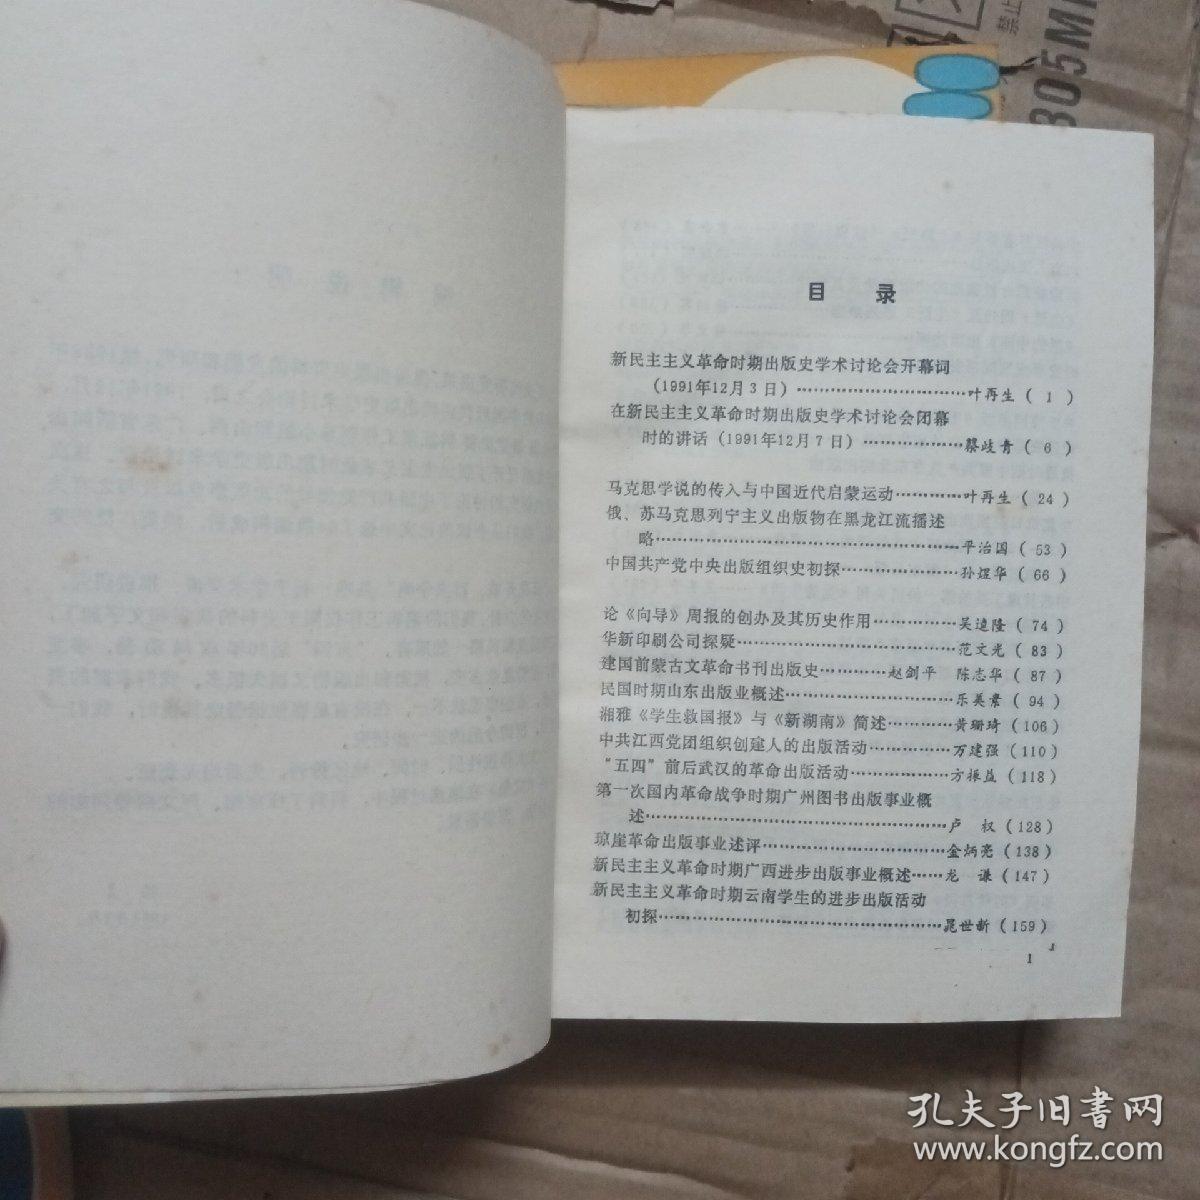 目 录
新民主主义革命时期出版史学术讨论会开幕词
(1991年12月3日)……………………………叶再生(1)
在新民主主义革命时期出版史学术讨论会闭幕
时的讲话(1991年12月7日)………………蔡岐青(6)
马克思学说的传入与中国近代启蒙运动…………叶再生(24)
俄、苏马克思列宁主义出版物在黑龙江流播述
略……………………………………………………平治国(53)
中国共产党中央出版组织史初探…………………孙煜华(66)
论《向导》周报的创办及其历史作用……………吴道隆(74)
华新印刷公司探疑……………………………………范文光(83)
建国前蒙古文革命书刊出版史…………赵剑平 陈志华(87)
民国时期山东出版业概述……………………………乐美素(94)
湘雅《学生救国报》与《新湖南》简述…………黄珊琦(106)
中共江西党团组织创建人的出版活动……………万建强(110)
“五四”前后武汉的革命出版活动………………方振益(118)
第一次国内革命战争时期广州图书出版事业概
述……………………………………………………卢 权(128)
琼崖革命出版事业述评………………………………金炳亮(138)
新民主主义革命时期广西进步出版事业概述……龙 谦(147)
新民主主义革命时期云南学生的进步出版活动
初探…………………………………………………晁世新(159)
1
305M
禁止
孔夫子旧书网
www.kongfz.com